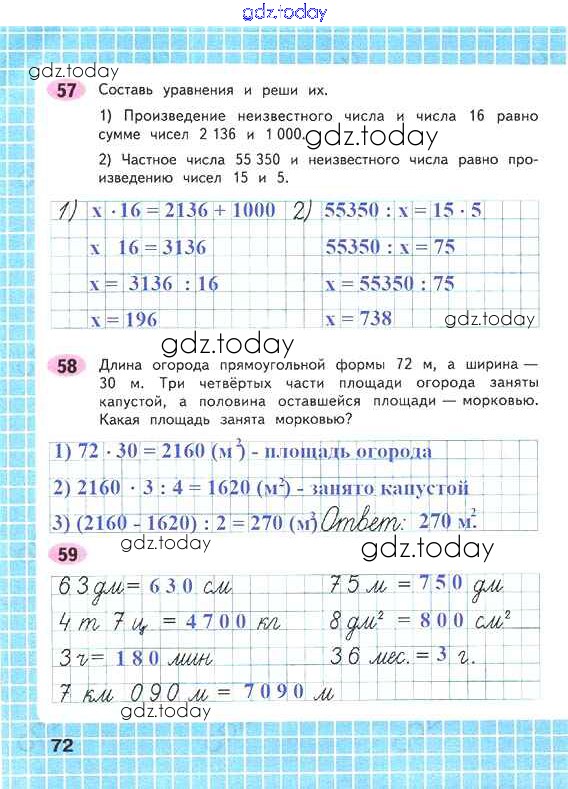 gdz.today
gdz.today
57 Составь уравнения и реши их.
1) Произведение неизвестного числа и числа 16 равно
сумме чисел 2 136 и 1 000.
gdz.today
2) Частное числа 55 350 и неизвестного числа равно про-
изведению чисел 15 и 5.
1) х · 16 = 2136 + 1000 2) 55350 : х = 15 · 5
х 16 = 3136 55350 : х = 75
х = 3136 : 16 х = 55350 : 75
х = 196 х = 738
gdz.today
gdz.today
58 Длина огорода прямоугольной формы 72 м, а ширина —
30 м. Три четвёртых части площади огорода заняты
капустой, а половина оставшейся площади — морковью.
Какая площадь занята морковью?
1) 72 · 30 = 2160 (м²) - площадь огорода
2) 2160 · 3 : 4 = 1620 (м²) - занято капустой
3) (2160 - 1620) : 2 = 270 (м²) Ответ: 270 м².
gdz.today
gdz.today
59
63 дм = 630 см 75 м = 750 дм
4 т 7 ц = 4700 кг 8 дм² = 800 см²
3 ч = 180 мин 36 мес. = 3 г.
7 км 090 м = 7090 м
gdz.today
72